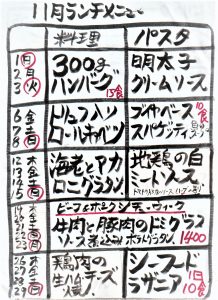 11月ランチメニュー
料理
パスタ
1(日)
2 月
3(火)
300g
ハンバーグ
15食
明太子
クリームソース
6 金
7 土
8(日)
トリュフ入り
ロールキャベツ
ブイヤベース
スパゲティ
10食
12 木
13 金
14 土
15(日)
海老とアカ
ロニグラタン
地鶏の白
ミートソース
ビーフ&ポークシチューウィーク
牛肉と豚肉のドミグラス
ソース煮込み ポテトグラタン
1400
鶏肉の
生ハムチーズ
焼
シーフード
ラザニア
1日
10食